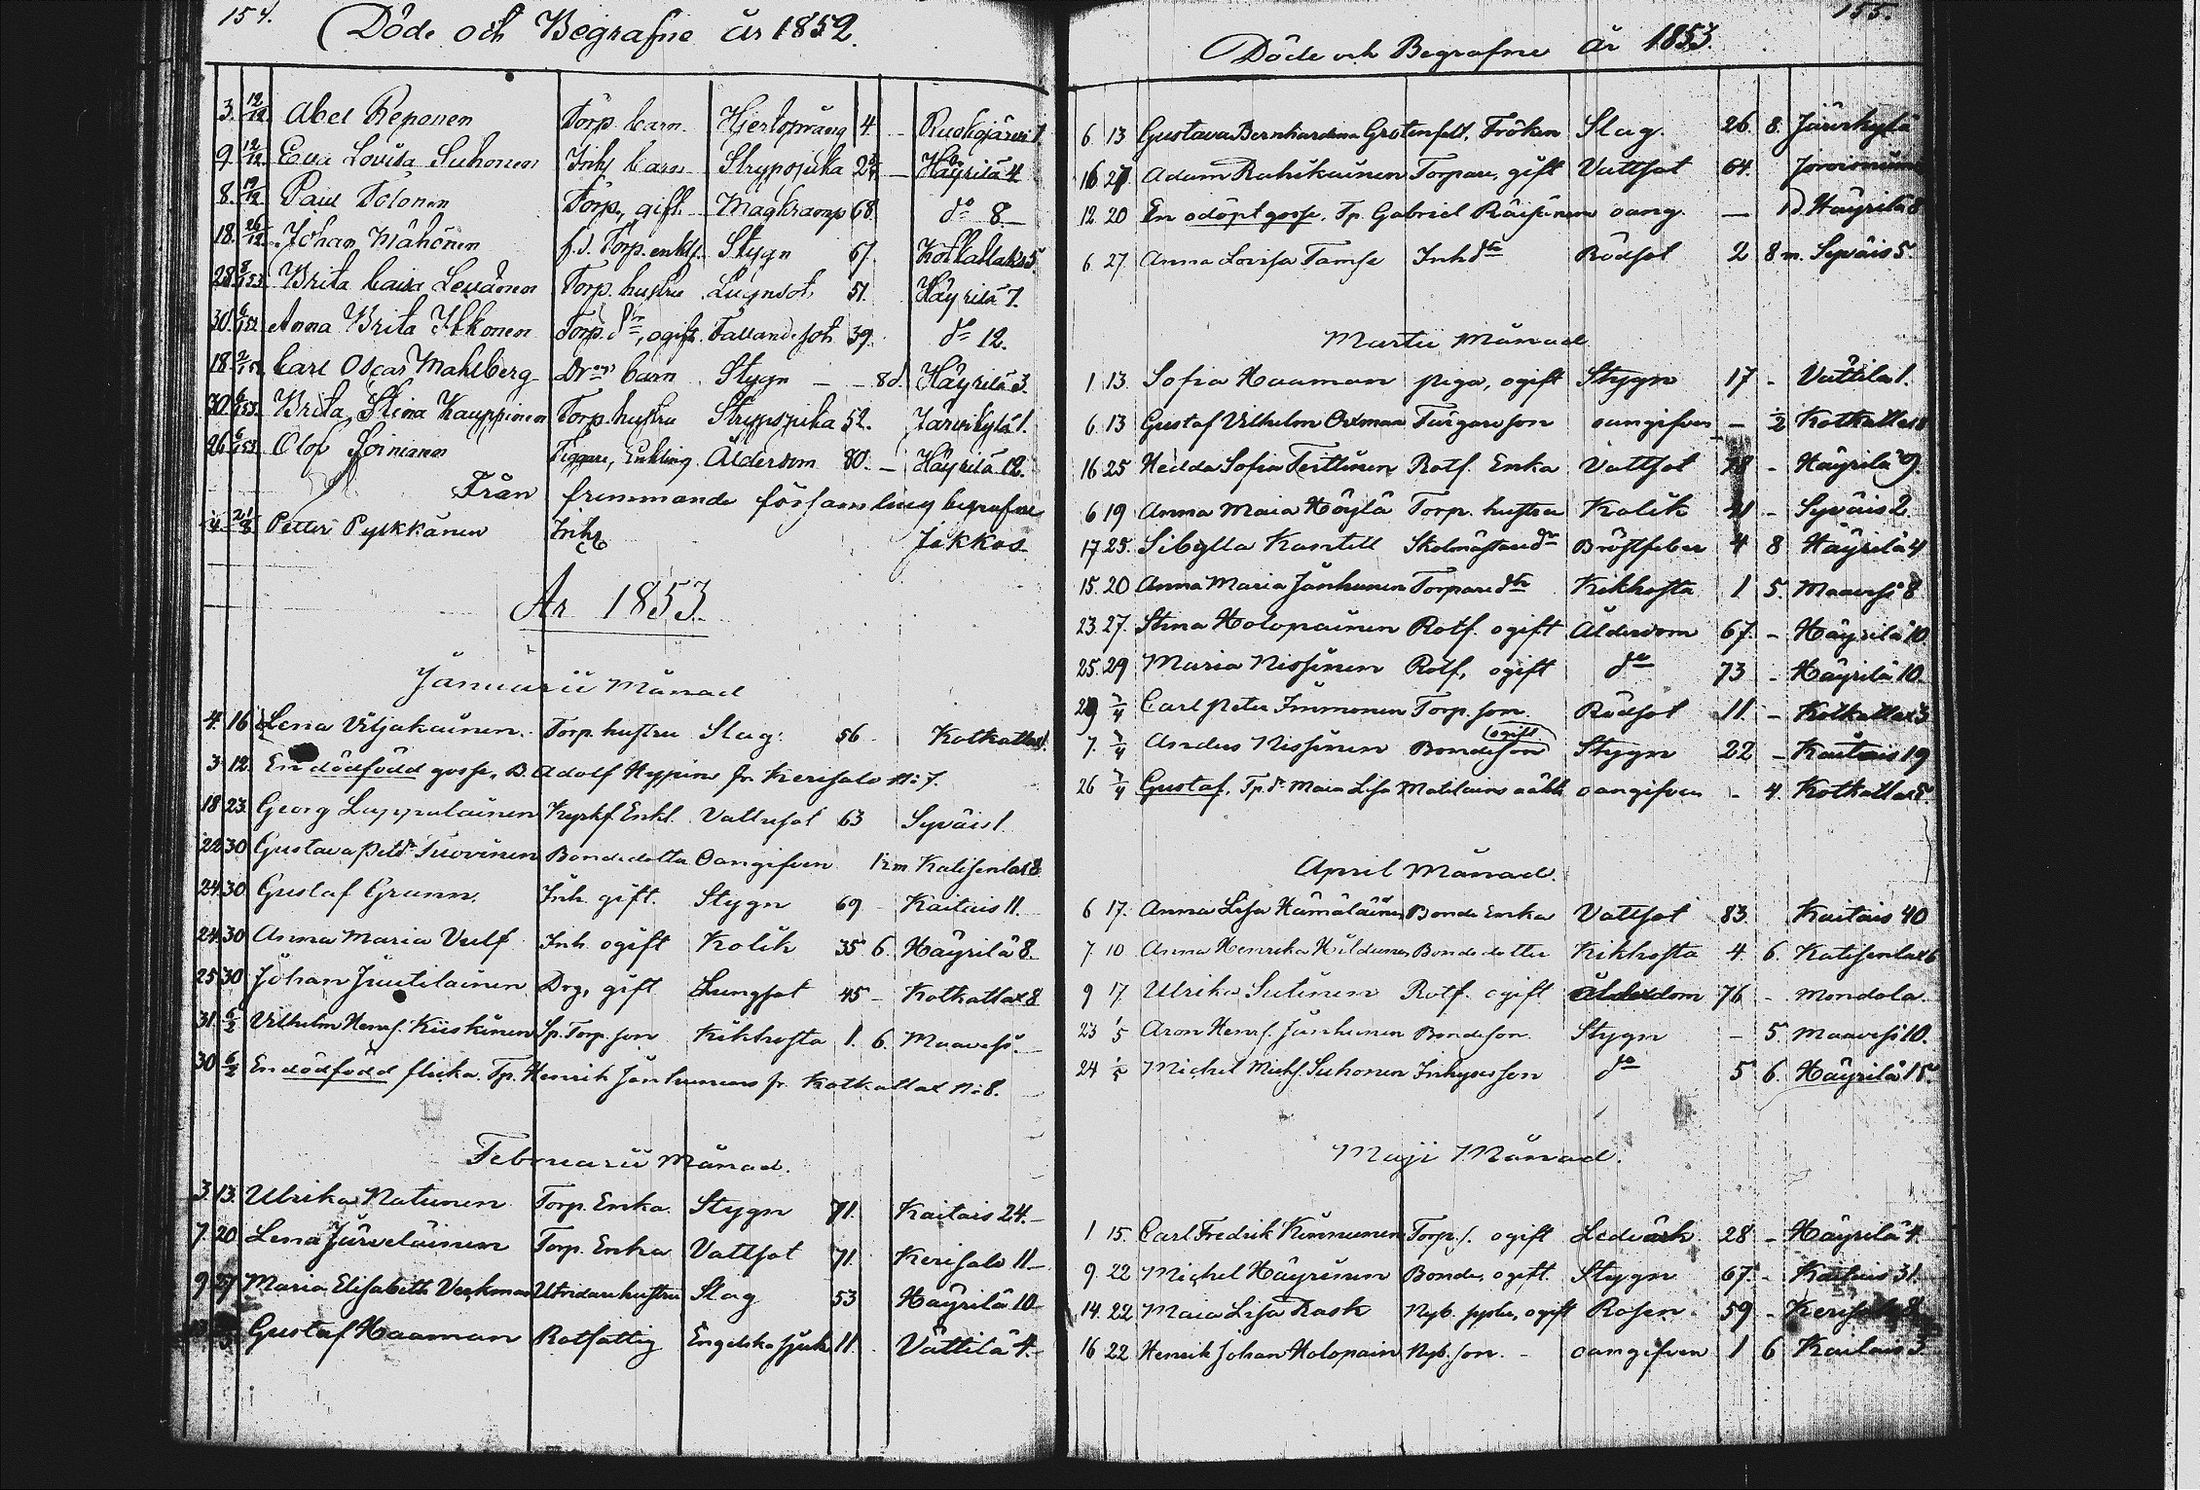 154.
Döde och Begrafne år 1852.
3. 12/12 Abel Reponen Torp. barn Hjertsprång 4 - Ruokojärvi 1
9. 12/12 Eva Lovisa Suhonen Inh. barn Strypsjuka 2 - Häyrilä 4
8. 19/12 Paul Tolonen Torp., gift Magkramp 68. do 8.
18. 26/12 Johan Mähönen f.d. Torp. enkl. Stygn 67. Kotkatlaks 5
28. Brita Caisa Levänen Torp. hustru Lungsot 51. Häyrilä 7.
30. Anna Brita Ikkonen Torp. dtr, ogift. Fallandesot 39. do 12.
18. Carl Oscar Mahlberg Drgs barn Stygn - - 8 d. Häyrilä 3.
30. Brita Stina Kauppinen Torp. hustru Strypsjuka 52. Järvikylä 1.
26. Olof Tiggare, Enkling Ålderdom 80. - Häyrilä 12.
Från fremmande församling begrafne
4 21/8 Petter Pyykkänen Inhs Jokkas
År 1853.
Januarii Månad
4. 16 Lena Viljakainen. Torp. hustru Slag. 56 Kotkatlax
3. 12. En dödfödd gosse, B. Adolf Hyppönen fr. Kerisalo N:o 7.
18 23. Georg Luppulainen Kyrkf. Enkl. Vattusot 63 Syväis 1.
22 30 Gustava Petdr Tuovinen Bondedotter Oangifven 1½ m Katisenlax 8
24 30 Gustaf Grann. Inh. gift. Stygn 69 - Kaitais 11.
24 30 Anna Maria Vulf Inh. ogift Kolik 35 6. Häyrilä 8.
25 30 Johan Juutilainen Drg, gift Lungsot 45 - Kotkatlax 8
31. 6/2 Vilhelm Henrs. Kiiskinen Sp. Torp. son Kikhosta 1. 6. Maavesi.
30 6/2 En dödfödd flicka. Tp. Henrik Jänhunens fr. Kotkatlax N:o 8.
Februarii Månad.
3. 13. Ulrika Natunen Torp. Enka. Stygn 71. Kaitais 24.
7. 20. Lena Järveläinen Torp. Enka Vattsot 71. Kerisalo 11
9 27 Maria Elisabeth Veckman hustru Slag 53 Häyrilä 10
Gustaf Haaman Rotfattig Engelska sjuk. 11. Vättilä 4.
155.
Döde och Begrafne år 1853.
6 13 Gustava Bernhardina Grotenfelt, Fröken Slag. 26. 8. Järvikylä
16 27 Adam Rahikainen Torpare, gift Vattsot 64. Jorois
12 20 En odöpt gosse, Tp. Gabriel Räisänen oang. - 1 d. Häyrilä 8
6 27. Anna Lovisa Tamse Inh dtr Rödsot 2 8 m. Syväis 5.
Martii Månad
1 13. Sofia Haaman piga, ogift Stygn 17 - Vättilä 1.
6 13 Gustaf Vilhelm Oxman son oangifven - ½ Kotkatlax
16 25 Hedda Sofia Teittinen Rotf. Enka Vattsot 78 - Häyrilä 9.
6 19 Anna Maia Höylä Torp. hustru Kolik 41 - Syväis 2.
17 25. Sibylla Kantell Skolmästaredr Bröstfeber 4 8 Häyrilä 4
15. 20 Anna Maria Jänhunen Torparedtr Kikhosta 1 5. Maavesi 8
23. 27. Stina Holopainen Rotf. ogift Ålderdom 67. - Häyrilä 10
25. 29 Maria Nissinen Rotf, ogift do 73 - Häyrilä 10.
29 3/4 Carl Peter Immonen Torp. son Rödsot 11. - Kotkatlax 3
7. 3/4 Anders Nissinen Bondeson ogift Stygn 22 - Kaitais 19
26 3/4 Gustaf, Tp dr Maia Lisa Matilains oäkta oangifven - 4. Kotkatlax 5.
April Månad.
6 17. Anna Lisa Hämäläinen Bonde Enka Vattsot 83. Kaitais 40
7. 10 Anna Henrika Hildunen Bondedotter Kikhosta 4. 6. Katisenlax 6
9 17. Ulrika Sutinen Rotf. ogift Ålderdom 76 - Mondola.
23 1/5 Aron Henrs. Jänhunen Bondeson. Stygn - 5. Maavesi 10.
24 1/5 Michel Michs. Suhonen Inhyses son do 5 6. Häyrilä 15.
Maji Månad.
1 15. Carl Fredrik Kinnunen Torp. s. ogift Ledvärk 28 - Häyrilä 4.
9. 22 Michel Häyrinen Bonde, ogift. Stygn 67. - Kaitais 31.
14. 22 Maia Lisa Rask Nyb. syster, ogift Rosen. 59 - Kerisalo 8
16 22 Henrik Johan Holopain Nyb. son. - oangifven 1 6 Kaitais 3.